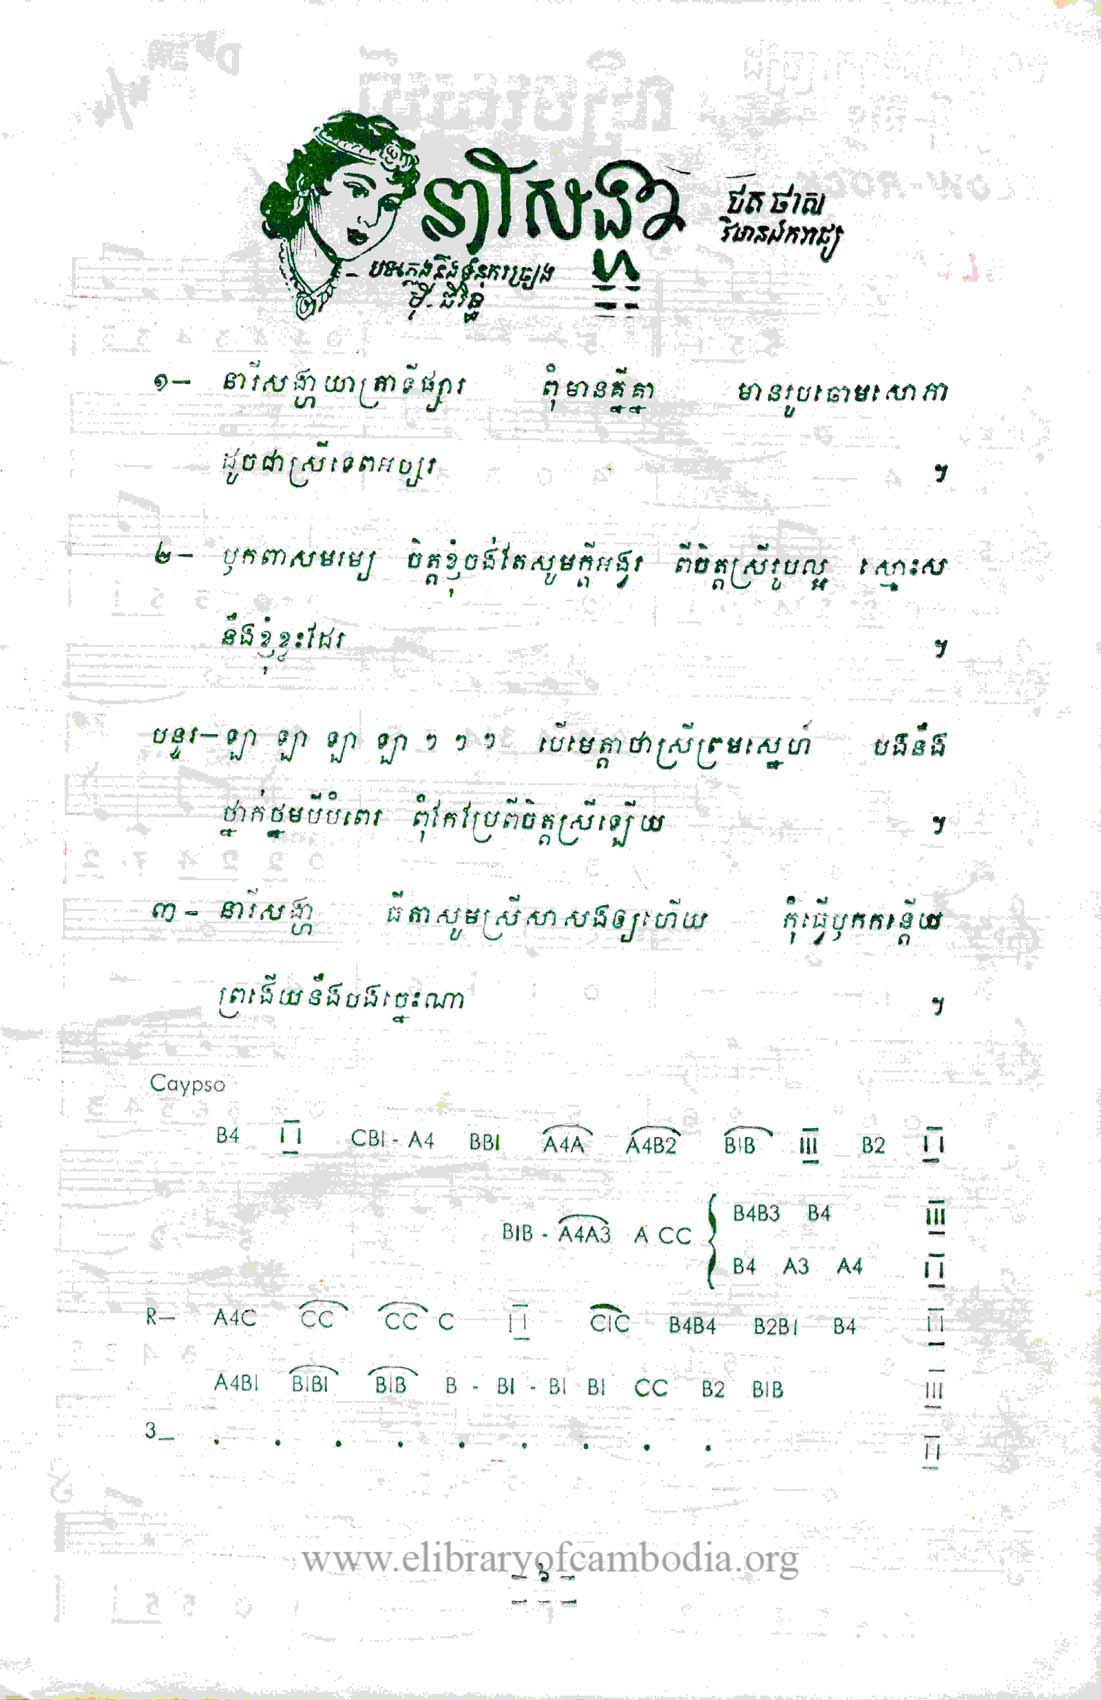 នារីសង្ហា
ថតថាស
វិមានឯករាជ្យ
- បទភ្លេងនិងទំនុកច្រៀង
ម៉ី. ជីវ័ន្ធ
១— នារីសង្ហាយាត្រាទីផ្សារ ពុំមានគ្នីគ្នា មានរូបឆោមសោភា
ដូចជាស្រីទេពអប្សរ ៗ
២— ឫកពាសមរម្យ ចិត្តខ្ញុំចង់តែសូមក្តីអង្វរ ពីចិត្តស្រីរូបល្អ ស្មោះស
នឹងខ្ញុំខ្លះដែរ ៗ
បន្ទរ—ឡា ឡា ឡា ឡា ៗ ៗ ៗ បើមេត្តាថាស្រីព្រមស្នេហ៍ បងនឹង
ថ្នាក់ថ្នមបីបំពេរ ពុំកែប្រែពីចិត្តស្រីឡើយ ៗ
៣— នារីសង្ហា ធីតាសូមស្រីសាសងឲ្យហើយ កុំធ្វើឫកកន្តើយ
ព្រងើយនឹងបងច្នេះណា ៗ
Caypso
B4 II CBI - A4 BBI A4A A4B2 BIB III B2 II
BIB - A4A3 A CC B4B3 B4 III
B4 A3 A4 II
R— A4C CC CC C II CIC B4B4 B2BI B4 II
A4BI BIBI BIB B - BI - BI BI CC B2 BIB III
3_ . . . . . . . . . II
www.elibraryofcambodia.org
- ៦ -